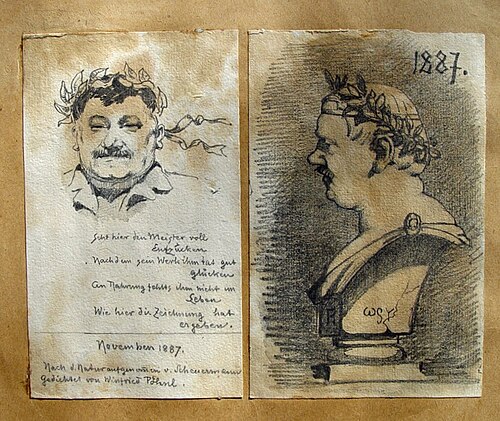 Seht hier den Meister voll
Entzücken
Nachdem sein Werk ihm tat gut
glücken
An Nahrung fehlts ihm nicht im
Leben
Wie hier die Zeichnung hat
ergeben.
November 1887.
Nach d. Natur aufgenommen v. Scheuermann
Gedichtet von Winfried
1887.